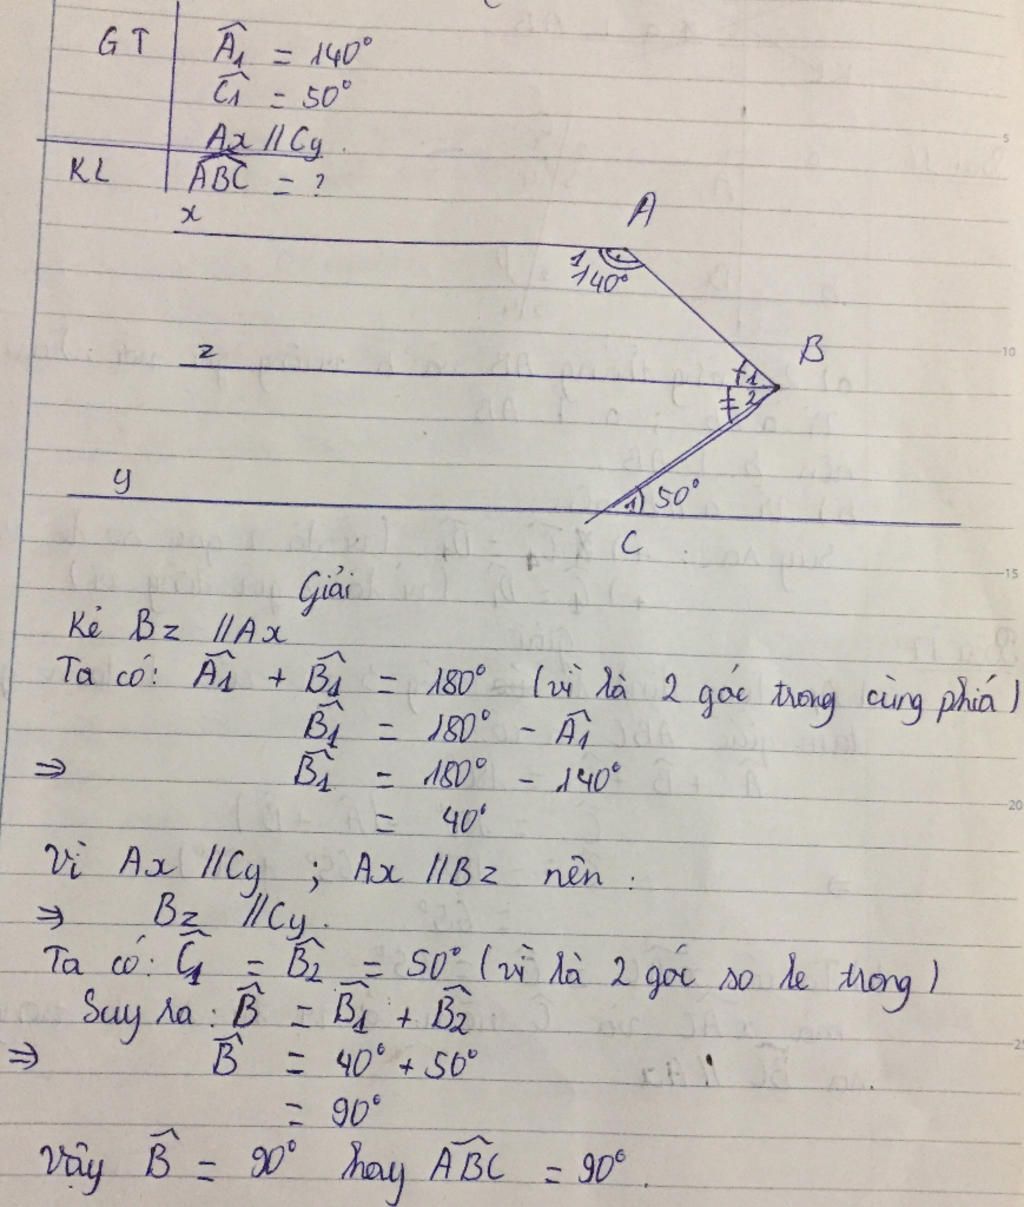 GT Â₁ = 140°
Ĉ₁ = 50°
Ax // Cy.
KL ABC = ?
x
A
1
140°
z
B
1
2
y
1
50°
C
Giải
Kẻ Bz //Ax
Ta có: Â₁ + B̂₁ = 180° (vì là 2 góc trong cùng phiá)
B̂₁ = 180° - Â₁
⇒ B̂₁ = 180° - 140°
= 40°
Vì Ax //Cy ; Ax //Bz nên :
⇒ Bz //Cy.
Ta có: Ĉ₁ = B̂₂ = 50° (vì là 2 góc so le trong)
Suy ra : B̂ = B̂₁ + B̂₂
⇒ B̂ = 40° + 50°
= 90°
Vậy B̂ = 90° hay ABC = 90°.
5
10
15
20
25